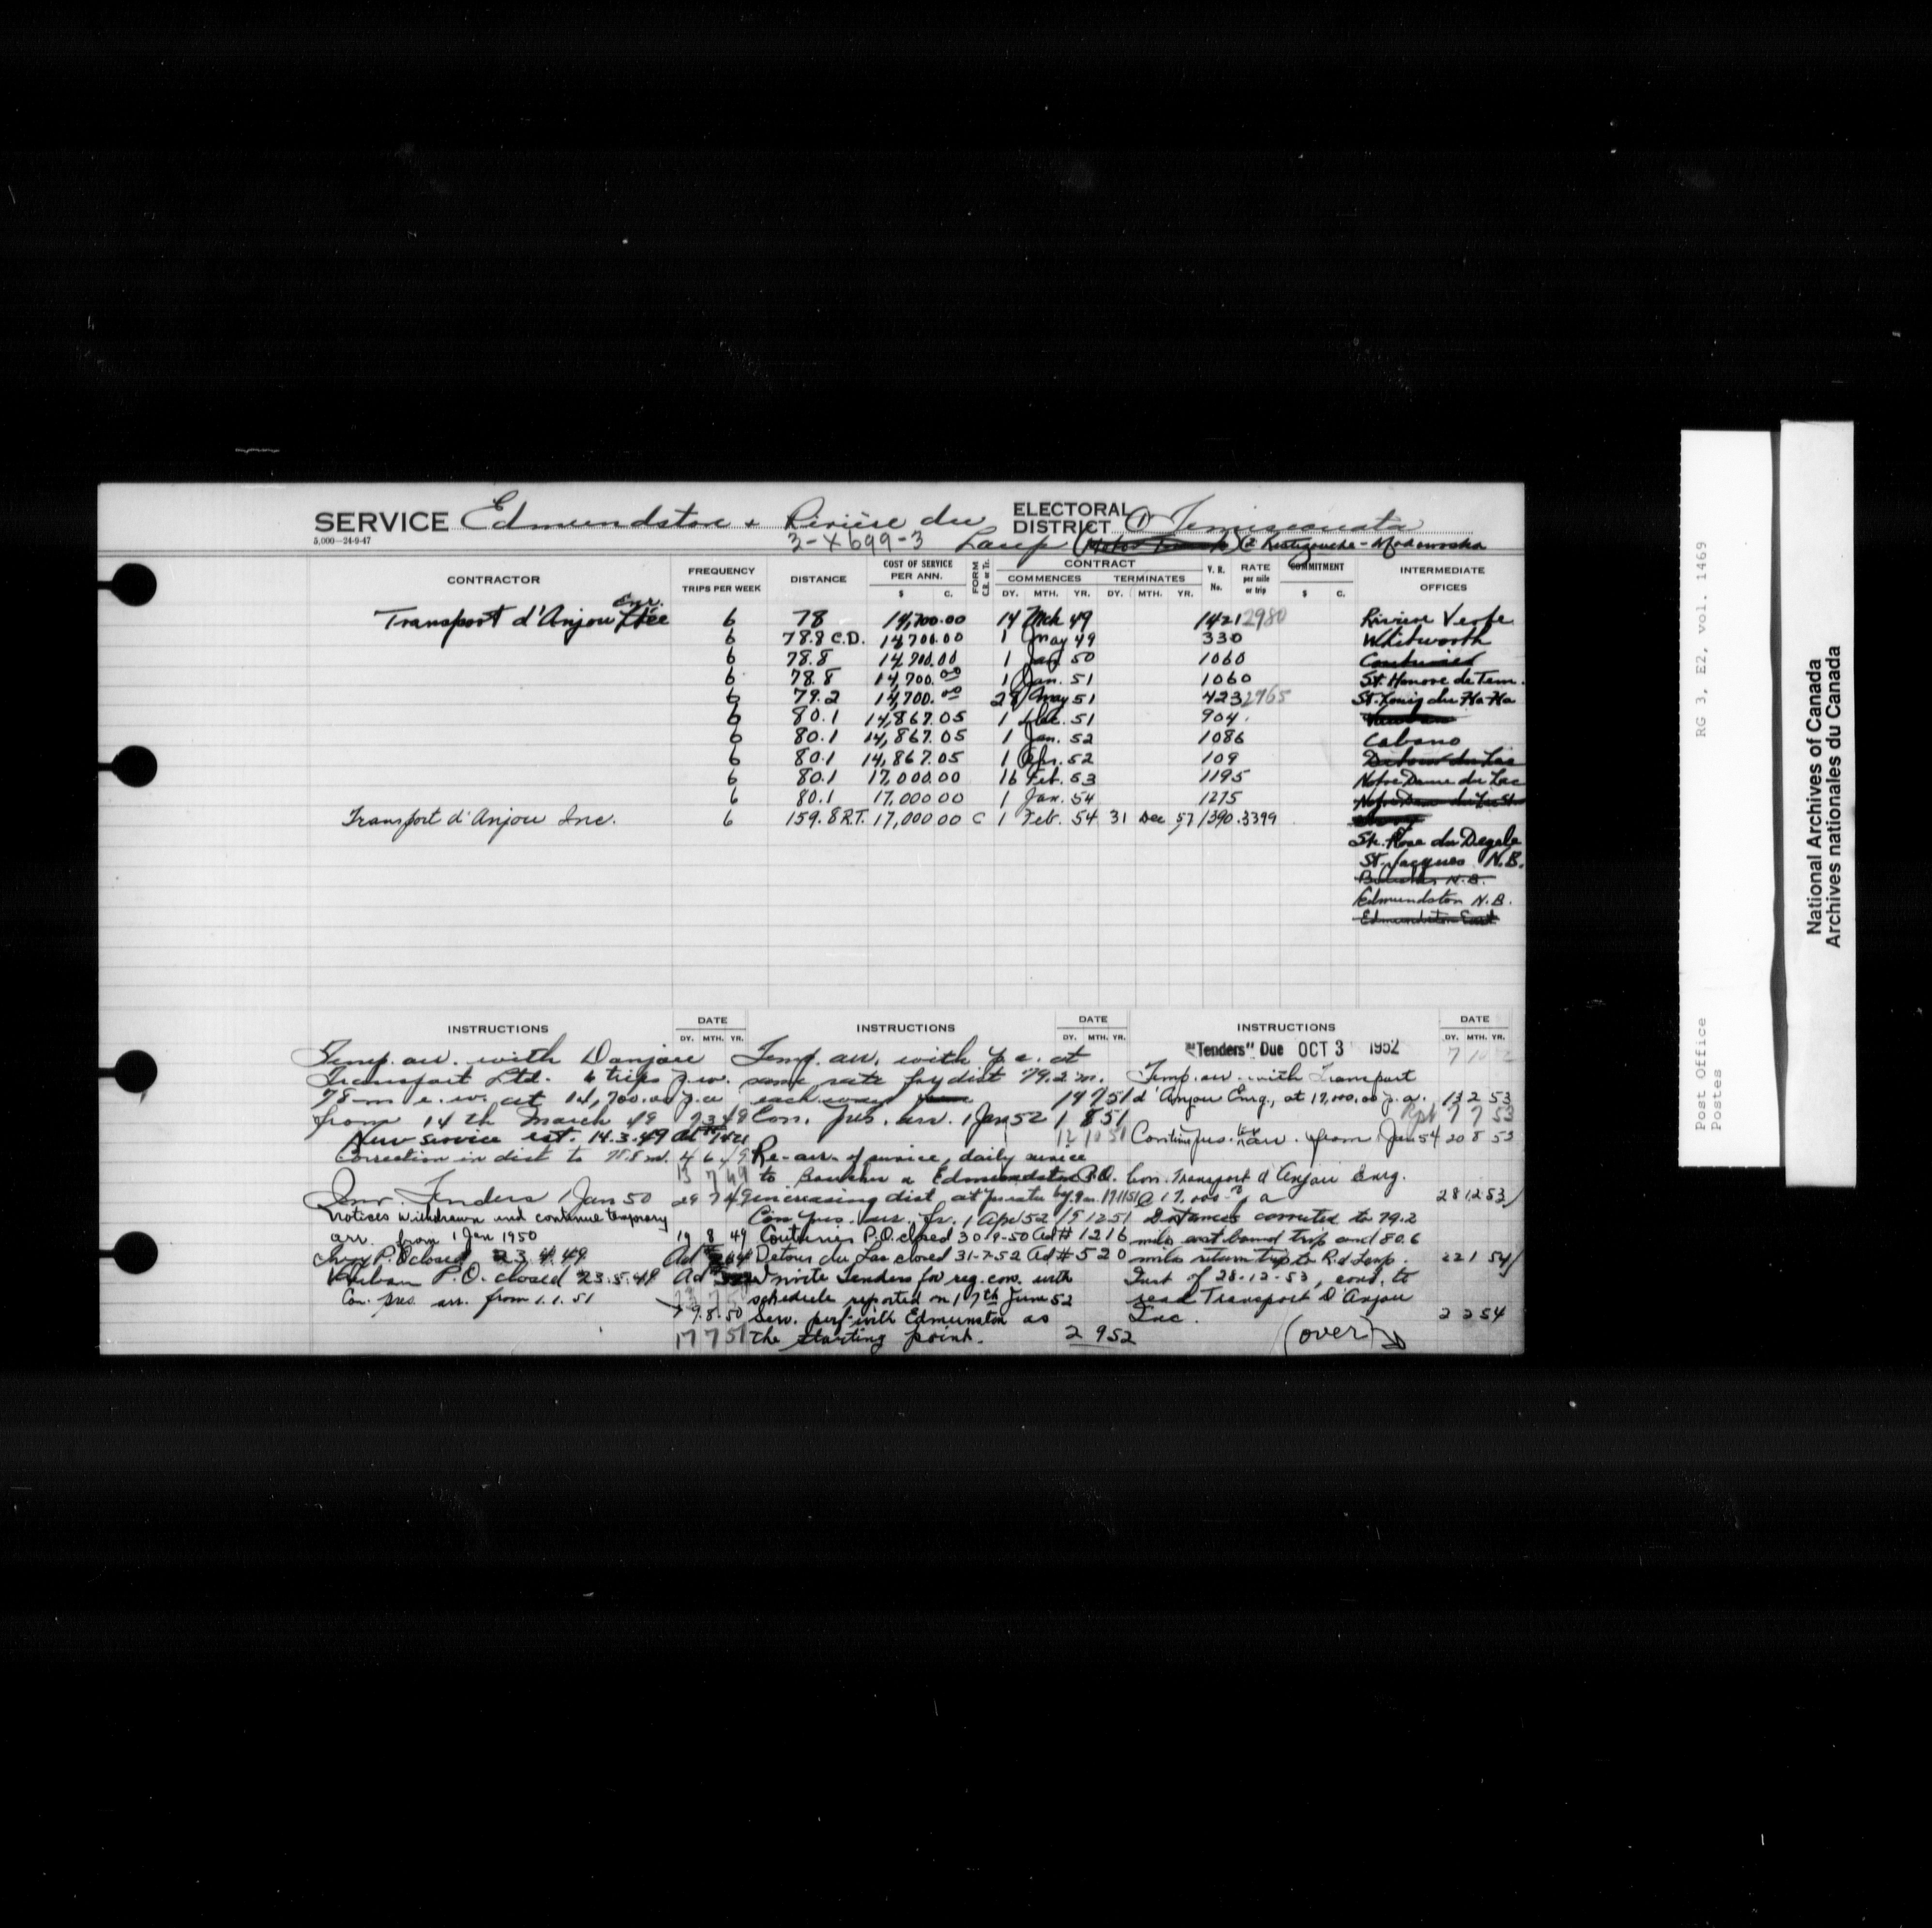 SERVICE Edmundston & Rivière du
ELECTORAL DISTRICT ① Temiscouata
5,000—24-9-47
3-X699-3 Loup (Motor Truck) ② Restigouche-Madawaska
CONTRACTOR FREQUENCY TRIPS PER WEEK DISTANCE COST OF SERVICE PER ANN. $ C. FORM C.B. or Tr. CONTRACT COMMENCES DY. MTH. YR. TERMINATES DY. MTH. YR. V.R. No. RATE per mile or trip COMMITMENT $ C. INTERMEDIATE OFFICES
Transport d'Anjou Ltée Enr. 6 78 14,700.00 14 Mch 49 1421 2980 Rivière Verte
6 78.8 C.D. 14,700.00 1 May 49 330 Whitworth
6 78.8 14,700.00 1 Jan 50 1060 Couturier
6 78.8 14,700.00 1 Jan. 51 1060 St. Honore de Tem.
6 79.2 14,700.00 28 May 51 423 2765 St. Louis du Ha-Ha
6 80.1 14,867.05 1 Dec. 51 904
6 80.1 14,867.05 1 Jan. 52 1086 Cabano
6 80.1 14,867.05 1 Apr. 52 109 Detour du Lac
6 80.1 17,000.00 16 Feb. 53 1195 Notre Dame du Lac
6 80.1 17,000.00 1 Jan. 54 1275
Transport d'Anjou Inc. 6 159.8 R.T. 17,000.00 C 1 Feb. 54 31 Dec 57 1390.3399
Ste. Rose du Degele
St. Jacques N.B.
Edmundston N.B.
Edmundston East
INSTRUCTIONS DATE DY. MTH. YR.
Temp. arr. with Danjou
Transport Ltd. 6 trips p.w.
78 m e.w. at 14,700.00 p.a
from 14th March 49 23 49
New service est. 14.3.49 Ad 1421
Correction in dist to 78.8 m. 4 6 49
13 7 49
Inv. Tenders 1 Jan 50 29 7 49
notices withdrawn and continue temporary
arr. from 1 Jan 1950 19 8 49
Ivry P.O closed 23.4.49 Ad
P.O. closed 23.5.49 Ad
Con. pres. arr. from 1.1.51
9.8.50
17 7 51
INSTRUCTIONS DATE DY. MTH. YR.
Temp. arr. with p.c. at
same rate for dist 79.2 m.
each way 19 7 51
Con. pres. arr. 1 Jan 52 1 8 51
12 10 51
Re-arr. of service, daily service
to Edmundston P.O.
increasing dist at pro rata
Con. pres. arr. fr. 1 Apr 52 15 12 51
Couturier P.O. closed 30-9-50 Ad# 1216
Detour du Lac closed 31-7-52 Ad# 520
Invite Tenders for reg. con. with
schedule reported on 17th June 52
Serv. perf. with Edmunston as
the starting point. 2 9 52
INSTRUCTIONS DATE DY. MTH. YR.
"Tenders" Due OCT 3 1952
Temp. arr. with Transport
d'Anjou Enrg., at 17,000.00 p.a. 13 2 53
Rpt 7 7 53
Contin. pres. arr. from 1 Jan 54 20 8 53
Con. Transport d'Anjou Enrg.
@ 17,000 p a 28 12 53
Distances corrected to 79.2
miles east bound trip and 80.6
miles return trip to R.d Loup. 22 1 54
Inst of 28-12-53, cond. to
read Transport D'Anjou
Inc. 2 2 54
(over)
RG 3, E2, vol. 1469
Post Office
Postes
National Archives of Canada
Archives nationales du Canada